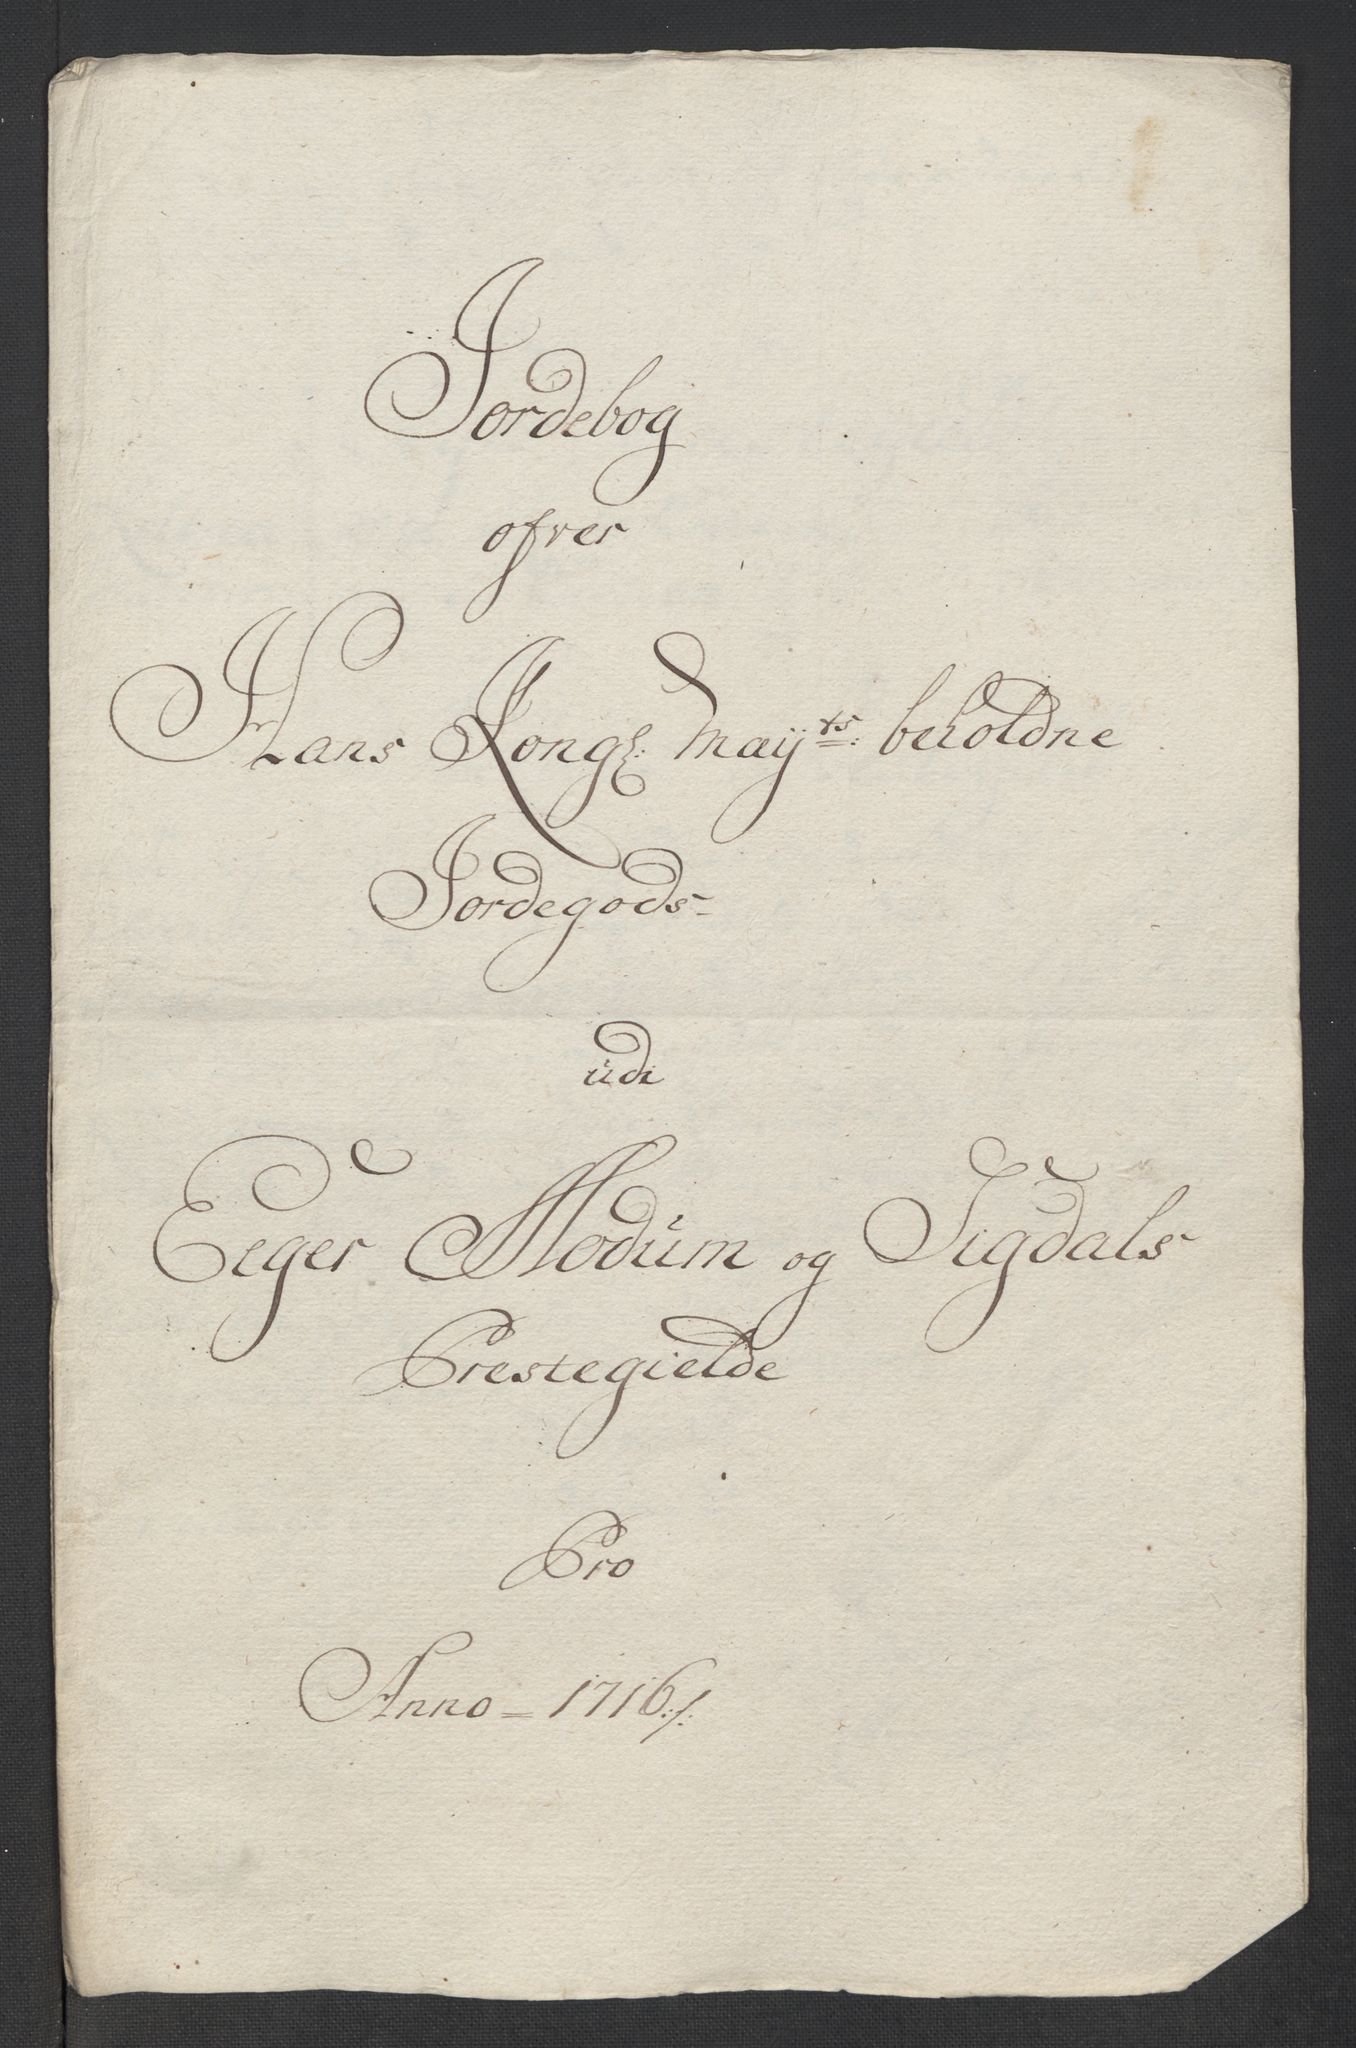 Jordebog
ofver
Hans Kongl: Mayts: beholdne
Jordegods
udi
Eeger Modum og Sigdals
Prestegielde
Pro
Anno 1716